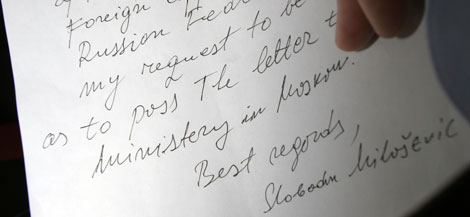 Foreign
Russian Fede
my request to be
as to poss The letter t
Ministery in Moskow.
Best regards,
Slobodan Milošević